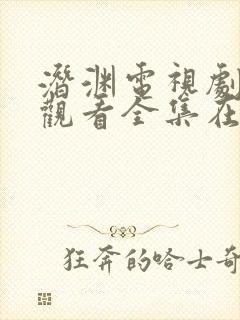 潛渊電視劇
觀看全集在
狂奔的哈士奇